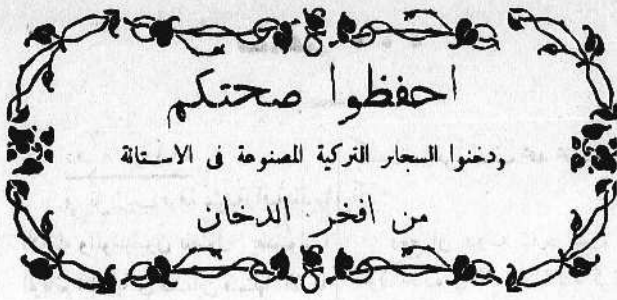 احفظوا صحتكم
ودخنوا السجار التركية المصنوعة فى الاستانة
من افخر الدخان